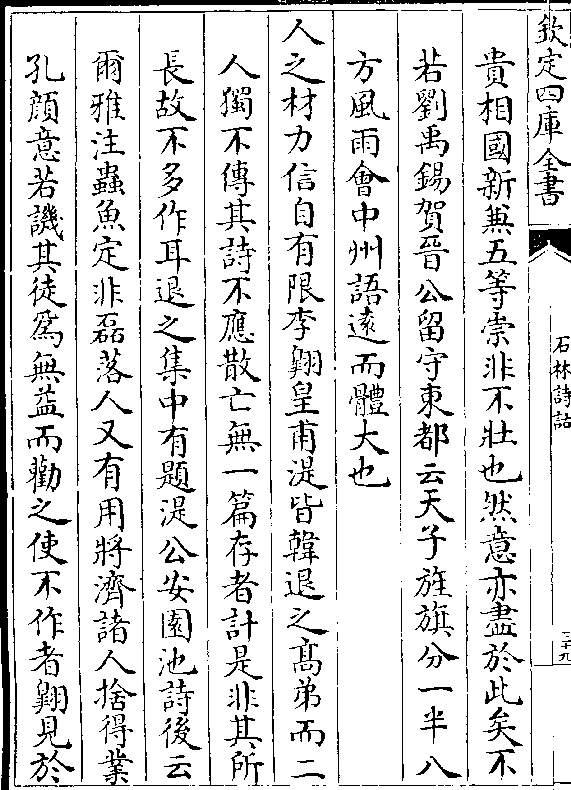 欽定四庫全書
石林詩話
三十九
貴相國新兼五等崇非不壯也然意亦盡於此矣不
若劉禹錫賀晉公留守東都云天子旌旗分一半八
方風雨會中州語遠而體大也
人之材力信自有限李翺皇甫湜皆韓退之高弟而二
人獨不傳其詩不應散亡無一篇存者計是非其所
長故不多作耳退之集中有題湜公安園池詩後云
爾雅注蟲魚定非磊落人又有用將濟諸人捨得業
孔顏意若譏其徒為無益而勸之使不作者翺見於